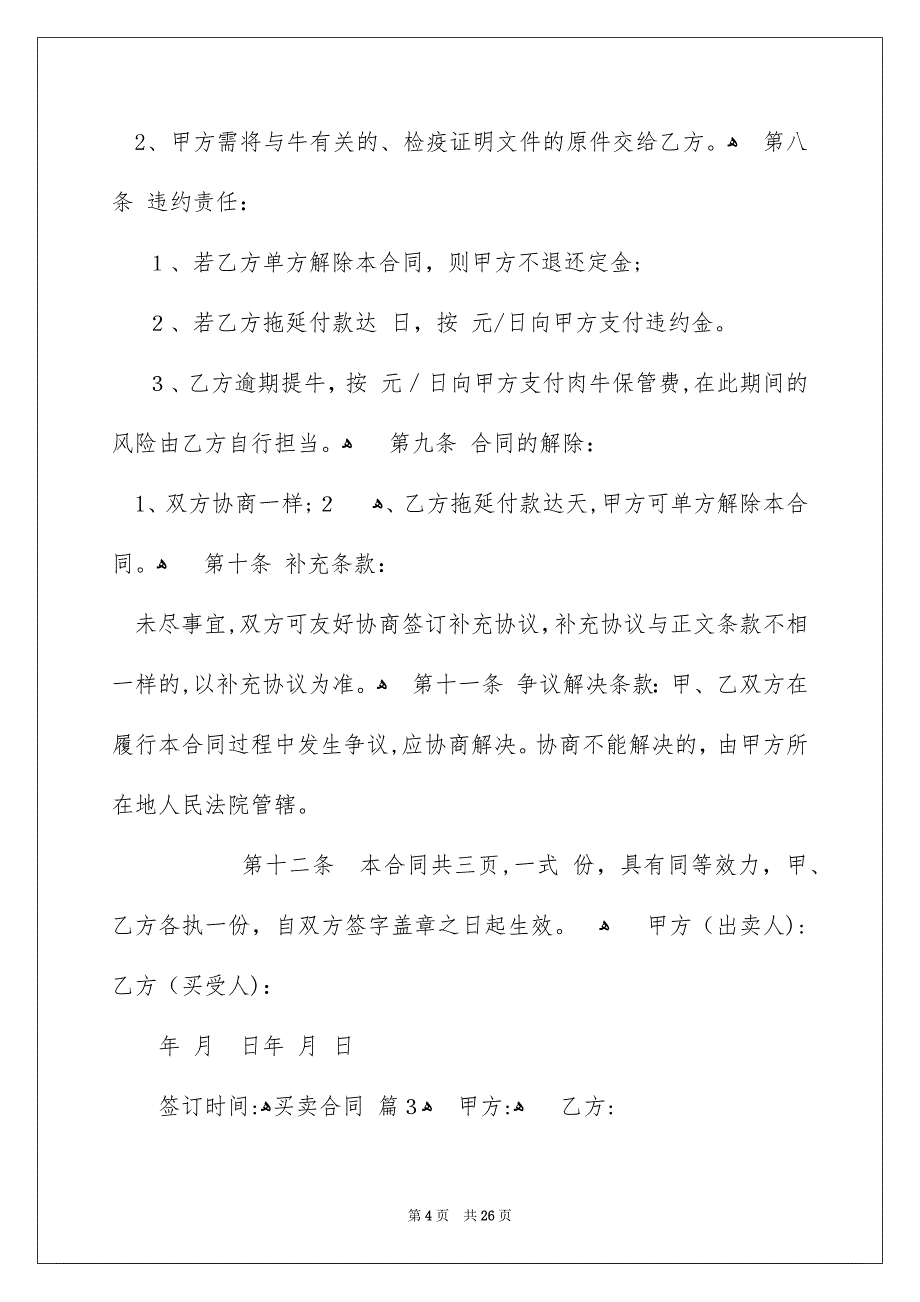 2、甲方需将与牛有关的、检疫证明文件的原件交给乙方。ﻫ 第八
条 违约责任：
1、若乙方单方解除本合同，则甲方不退还定金;
2、若乙方拖延付款达 日，按 元/日向甲方支付违约金。
3、乙方逾期提牛，按 元／日向甲方支付肉牛保管费,在此期间的
风险由乙方自行担当。ﻫ 第九条 合同的解除：
1、双方协商一样；2 ﻫ、乙方拖延付款达天,甲方可单方解除本合
同。ﻫ 第十条 补充条款：
未尽事宜,双方可友好协商签订补充协议，补充协议与正文条款不相
一样的,以补充协议为准。ﻫ 第十一条 争议解决条款：甲、乙双方在
履行本合同过程中发生争议,应协商解决。协商不能解决的，由甲方所
在地人民法院管辖。
第十二条 本合同共三页,一式 份，具有同等效力，甲、
乙方各执一份，自双方签字盖章之日起生效。 ﻫ 甲方（出卖人):
乙方（买受人)：
年 月 日年 月 日
签订时间:ﻫ买卖合同 篇3ﻫ 甲方:ﻫ 乙方:
第4页 共26页